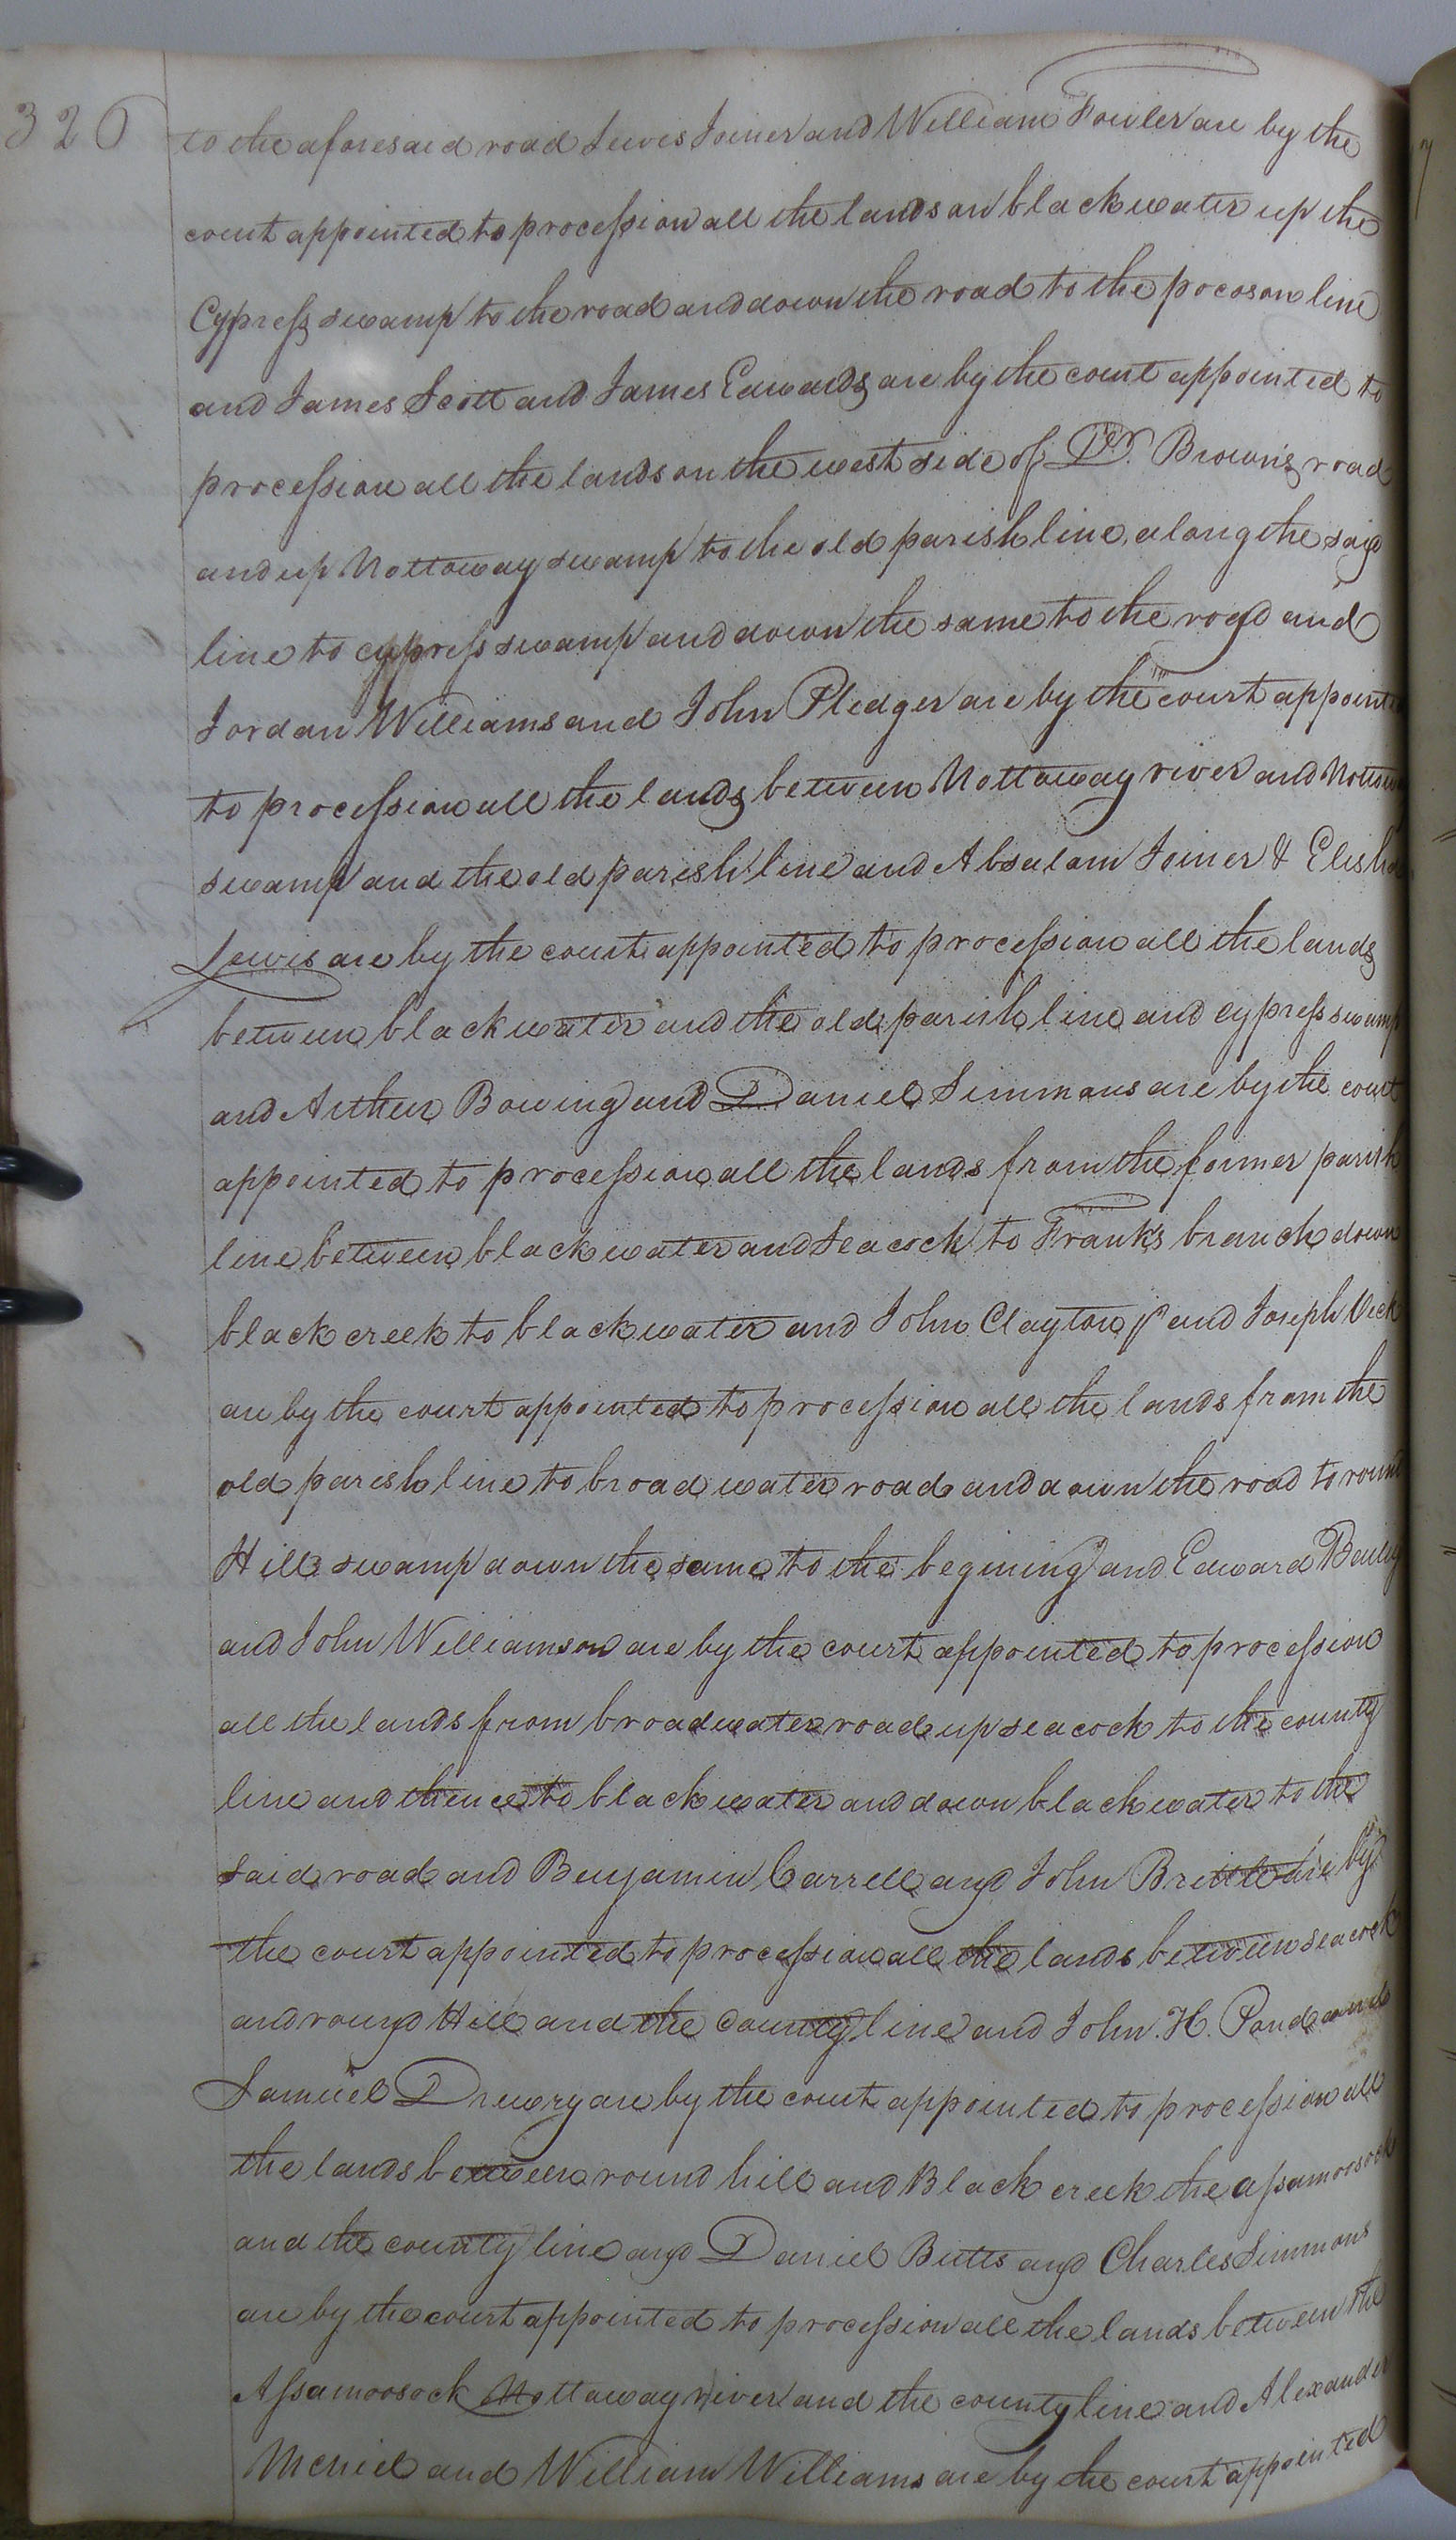 320
to the aforesaid road Lewis Joiner and William Fowler are by the
court appointed to procession all the lands on blackwater up the
Cypress swamp to the road and down the road to the pocoson line
and James Scott and James Edwards are by the court appointed to
procession all the lands on the west side of Dr. Brown's road
and up Nottoway swamp to the old parish line, along the said
line to cypress swamp and down the same to the road and
Jordan Williams and John Pledger are by the court appointed
to procession all the lands between Nottoway river and Nottoway
swamp and the old parish line and Absalam Joiner & Elisha
Lewis are by the court appointed to procession all the lands
between blackwater and the old parish line and cypress swamp
and Arthur Bowing and Daniel Simmons are by the court
appointed to procession all the lands from the former parish
line between blackwater and Seacock to Frank's branch down
black creek to blackwater and John Clayton jr and Joseph Vick
are by the court appointed to procession all the lands from the
old parish line to broad water road and down the road to round
Hill swamp down the same to the begining and Edward Bailey
and John Williamson are by the court appointed to procession
all the lands from broadwater road up seacock to the county
line and thence to blackwater and down blackwater to the
said road and Benjamin Carrell and John Brittle are by
the court appointed to procession all the lands between seacock
and round Hill and the county line and John. H. Pond and
Samuel Drewry are by the court appointed to procession all
the lands between round hill and Black creek the assamoosock
and the county line and Daniel Butts and Charles Simmons
are by the court appointed to procession all the lands between the
Assamoosock Nottaway river and the county line and Alexander
Mcniel and William Williams are by the court appointed